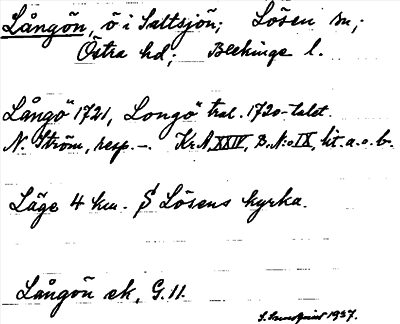 Långön, ö i Saltsjön; Lösen sn;
Östra hd; Blekinge l.
Långö" 1721, Longö" tral. 1720-talet.
N. Ström, resp. -. Kr.A. XXIV, D. N:o IX, lit. a. o. b.
Läge 4 km. S Lösens kyrka.
Långön ek, G.11.
1937.